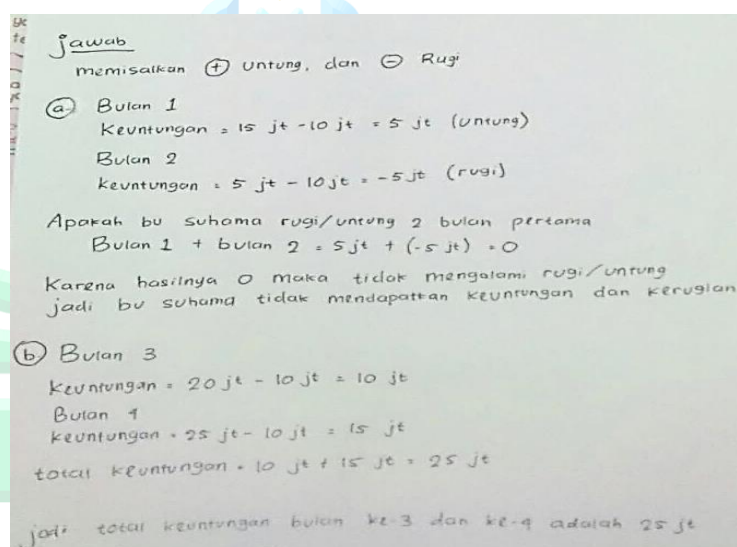 Jawab
memisalkan (+) untung, dan (-) Rugi
(a) Bulan 1
Keuntungan = 15 jt - 10 jt = 5 jt (untung)
Bulan 2
keuntungan = 5 jt - 10 jt = -5 jt (rugi)
Apakah bu suhama rugi/untung 2 bulan pertama
Bulan 1 + bulan 2 = 5 jt + (-5 jt) = 0
Karena hasilnya 0 maka tidak mengalami rugi/untung
jadi bu suhama tidak mendapatkan keuntungan dan kerugian
(b) Bulan 3
Keuntungan = 20 jt - 10 jt = 10 jt
Bulan 4
keuntungan = 25 jt - 10 jt = 15 jt
total keuntungan = 10 jt + 15 jt = 25 jt
jadi total keuntungan bulan ke-3 dan ke-4 adalah 25 jt